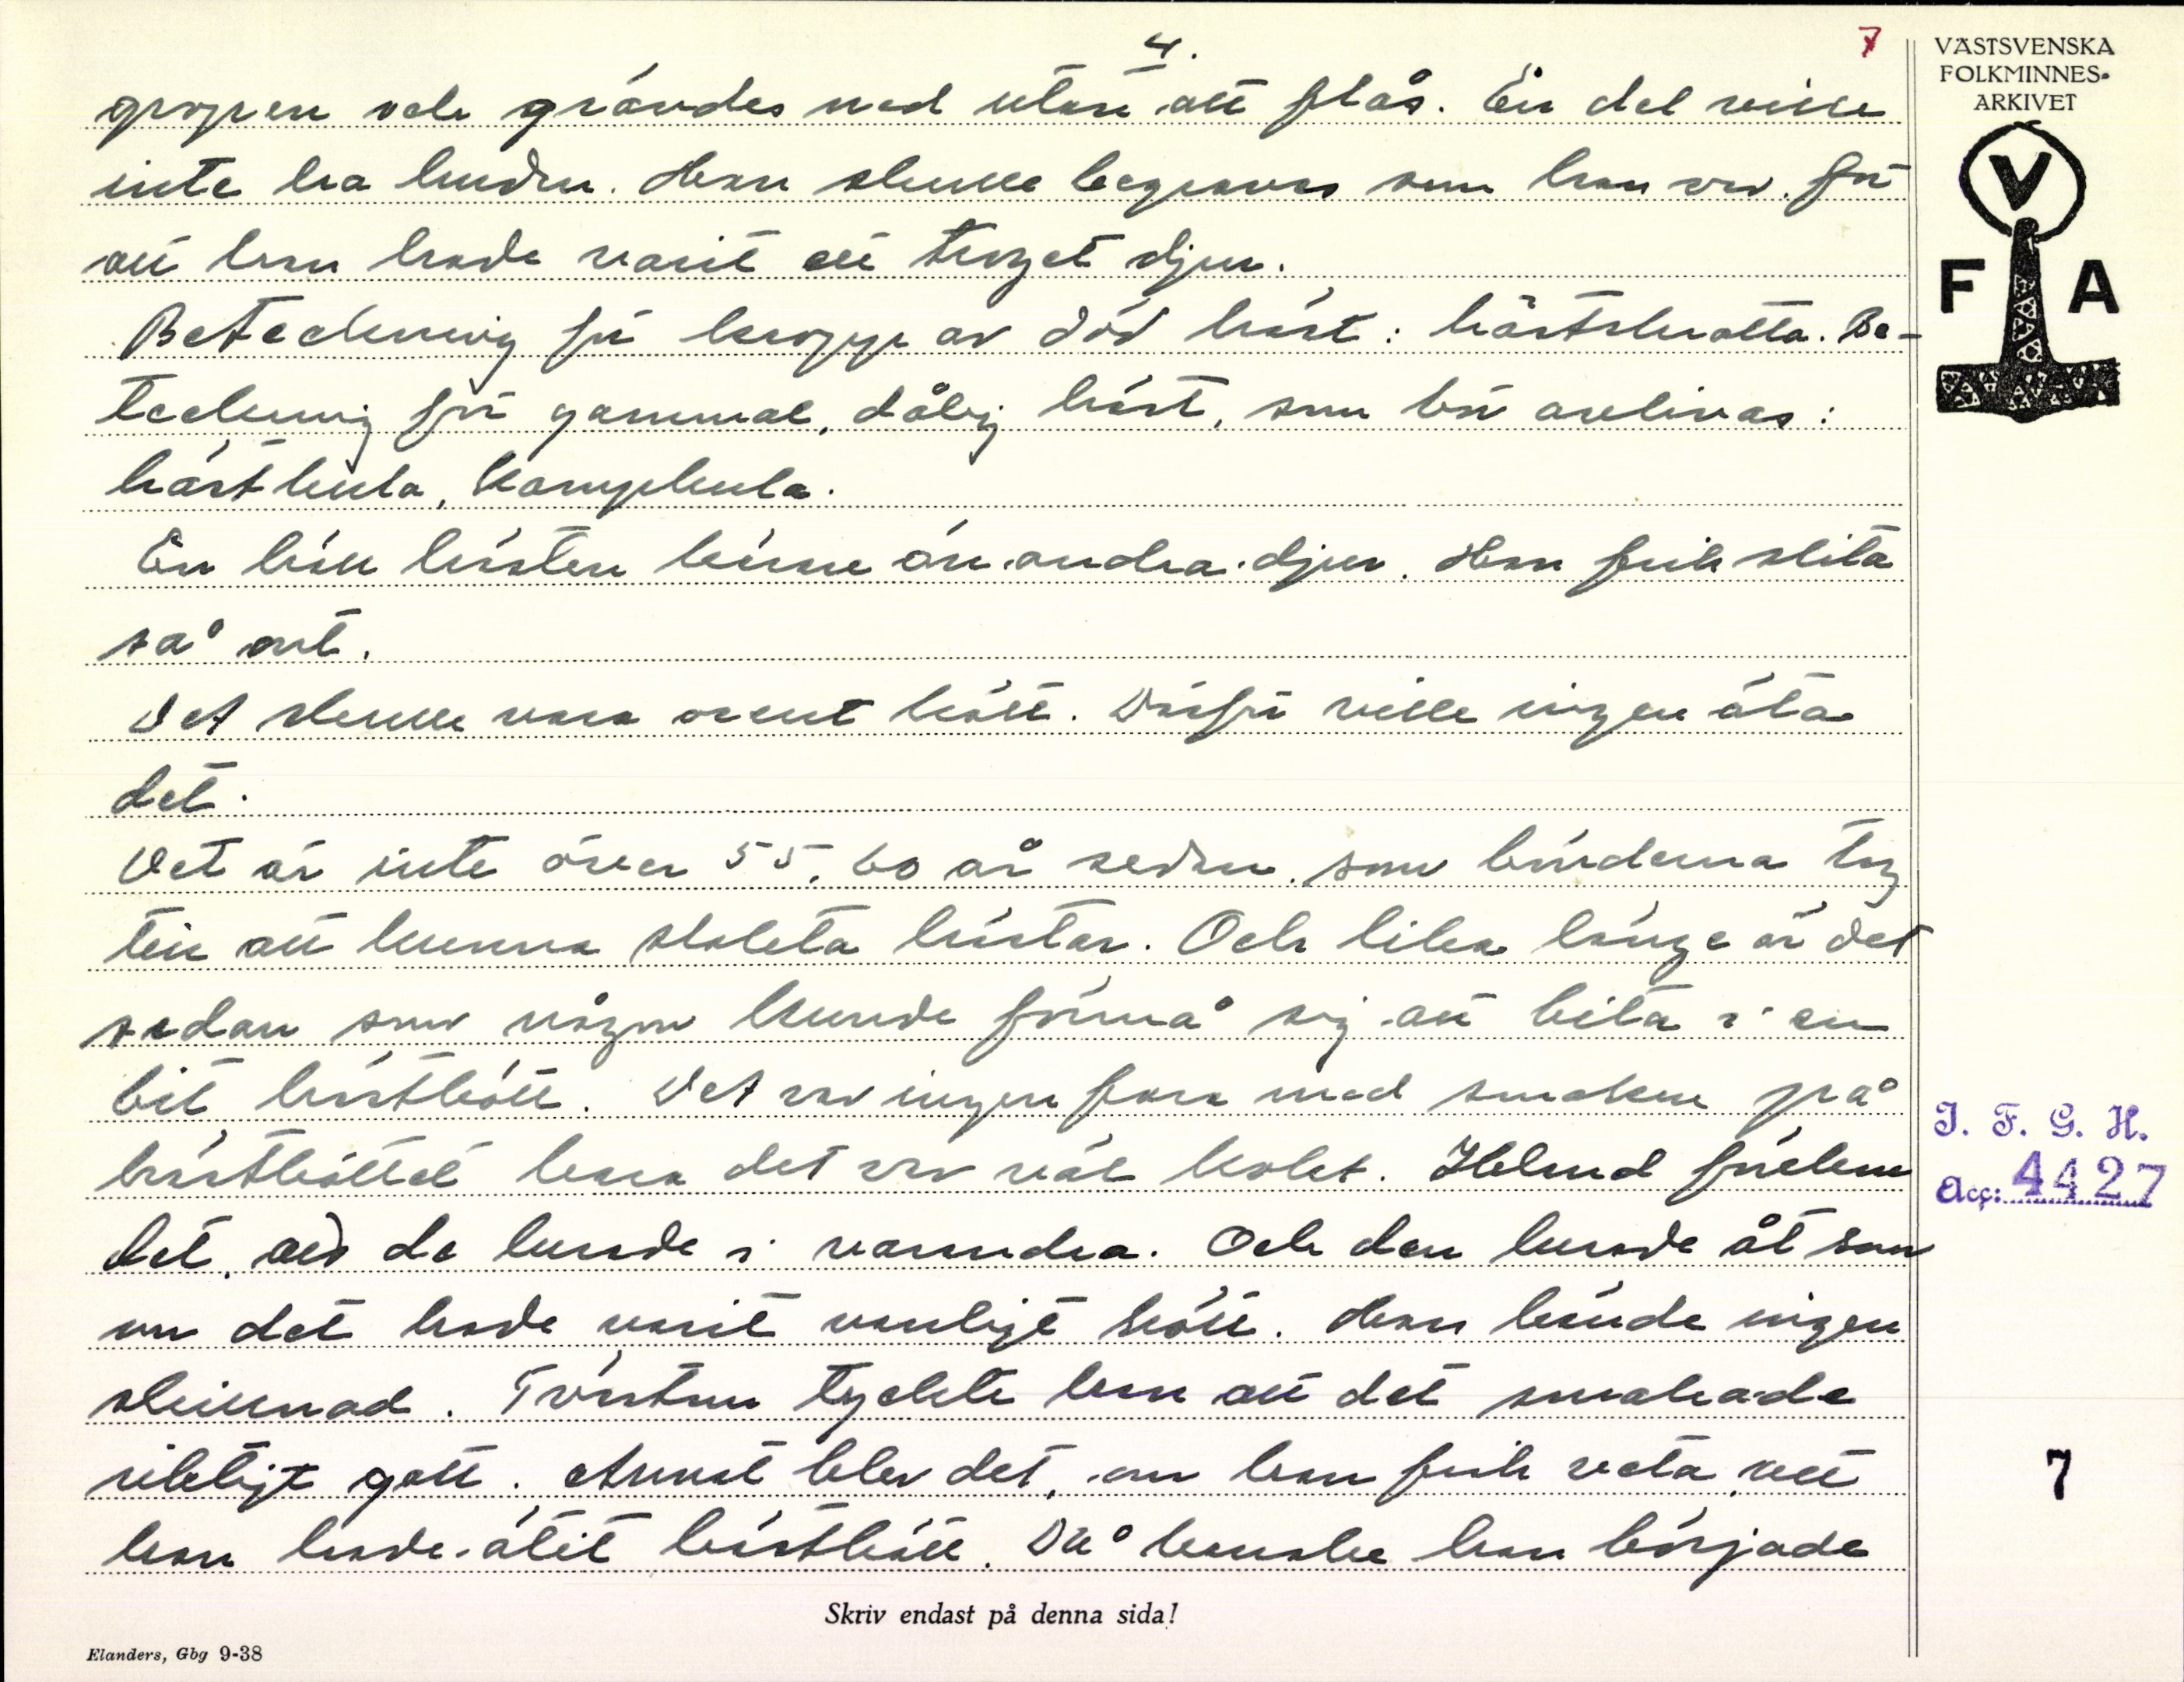 4.
7
VÄSTSVENSKA
FOLKMINNES-
ARKIVET
V
F A
gropen och grävdes ned utan att flås. En del ville
inte ha huden. Han skulle begravas som han var. för
att han hade varit ett troget djur.
Beteckning för kropp av död häst: hästskrotta. Be-
teckning för gammal, dålig häst, som bör avlivas:
hästkula, kampkula.
En höll hästen kärare än andra djur. Han fick slita
så ont.
Det skulle vara orent kött. Därför ville ingen äta
det.
Det är inte över 55, 60 år sedan som bönderna tog
till att kunna slakta hästar. Och lika länge är det
sedan som någon kunde förmå sig att bita i en
bit hästkött. Det var ingen fara med smaken på
hästköttet bara det var väl kokt. Ibland förekom
det, att de lurade i varandra. Och den lurade åt som
om det hade varit vanligt kött. Han kände ingen
skillnad. Tvärtom tyckte han att det smakade
riktigt gott. Annat blev det, om han fick veta att
han hade ätit hästkött. Då kanske han började
J. F. G. H.
Acc: 4427
7
Skriv endast på denna sida!
Elanders, Gbg 9-38